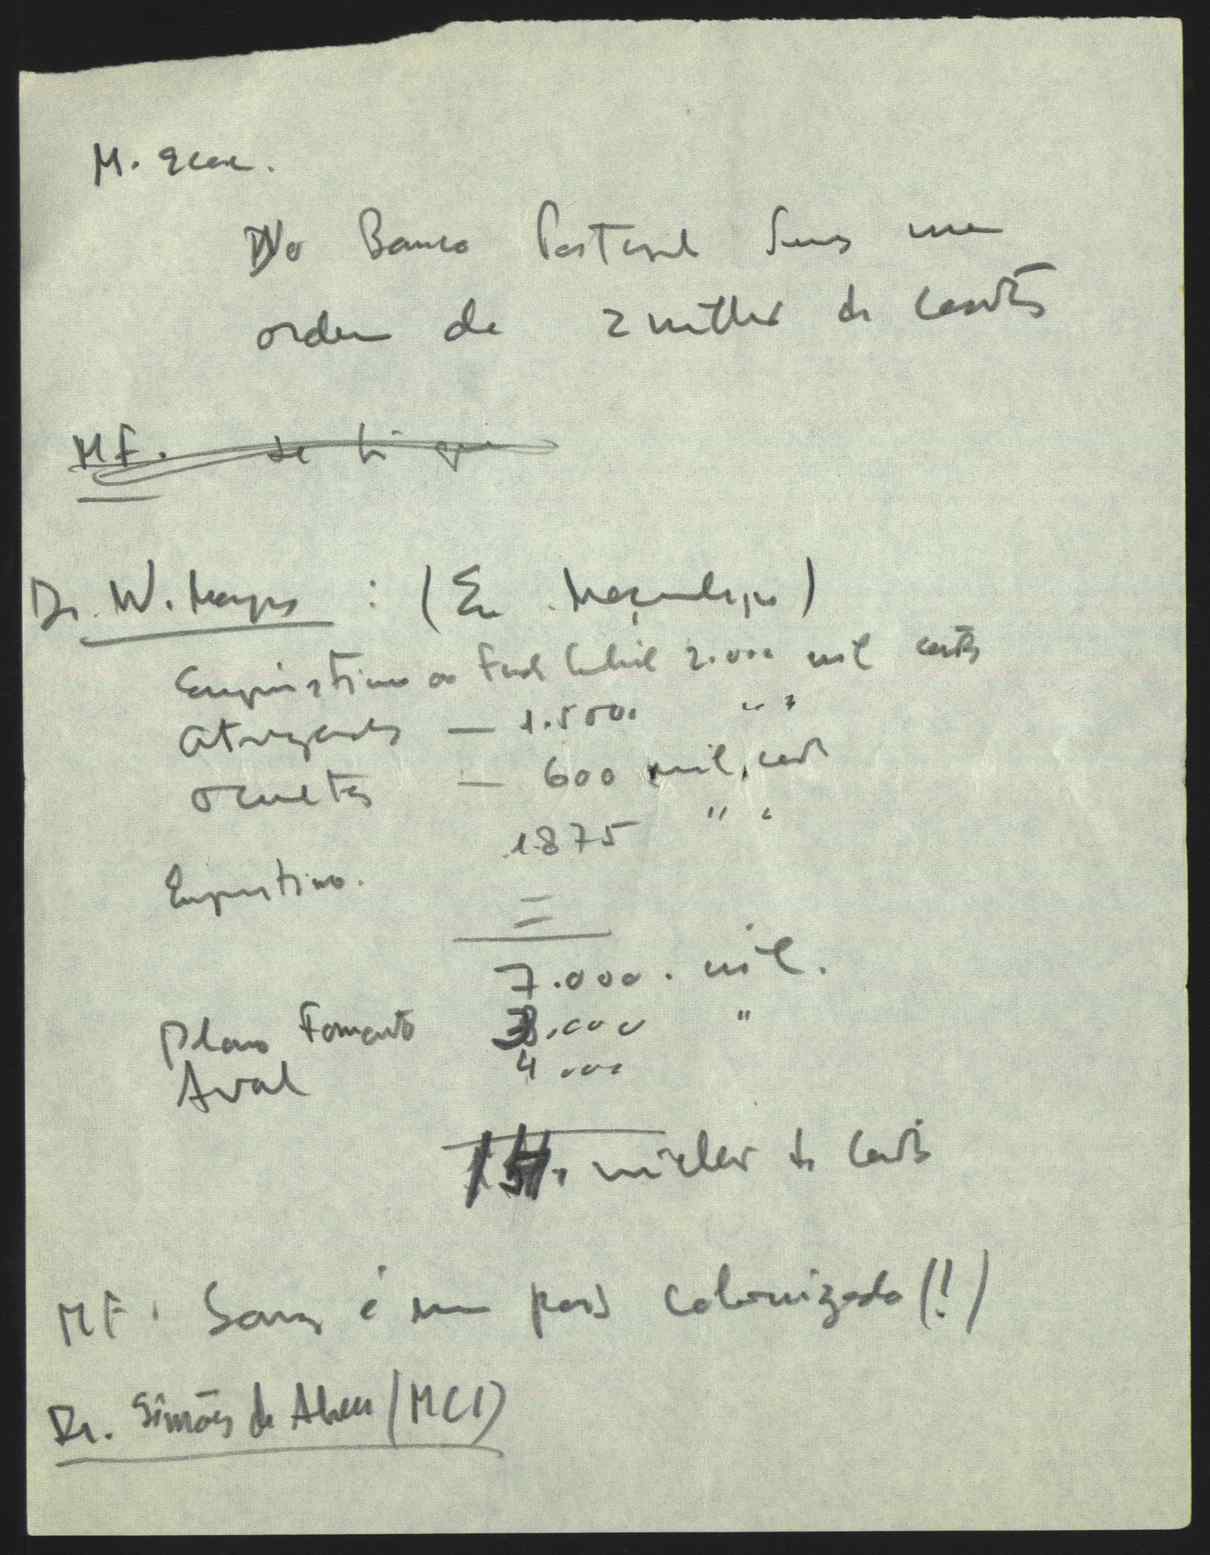 M. Econ.
No Banco Portugal temos uma
ordem de 2 milhões de contos
MF. se há que
Dr. W. Marques : (Em Moçambique)
Empréstimo ao 2.000 mil contos
Atrazados — 1.500 " "
Ocultos — 600 mil cont
1875 " "
Empréstimo.
=
7.000. mil.
Plano Fomento 3.000 "
Aval 4.000
14. milhões de contos
MF: Somos é um país colonizado (!)
Dr. Simões de Abreu (MCI)